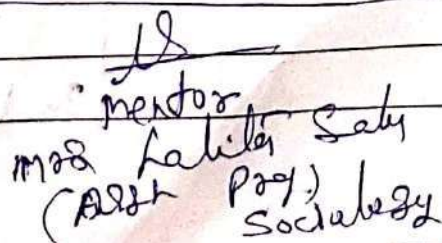 Mentor
Mrs Lalita Sahu
(Asst Prof.)
Sociology